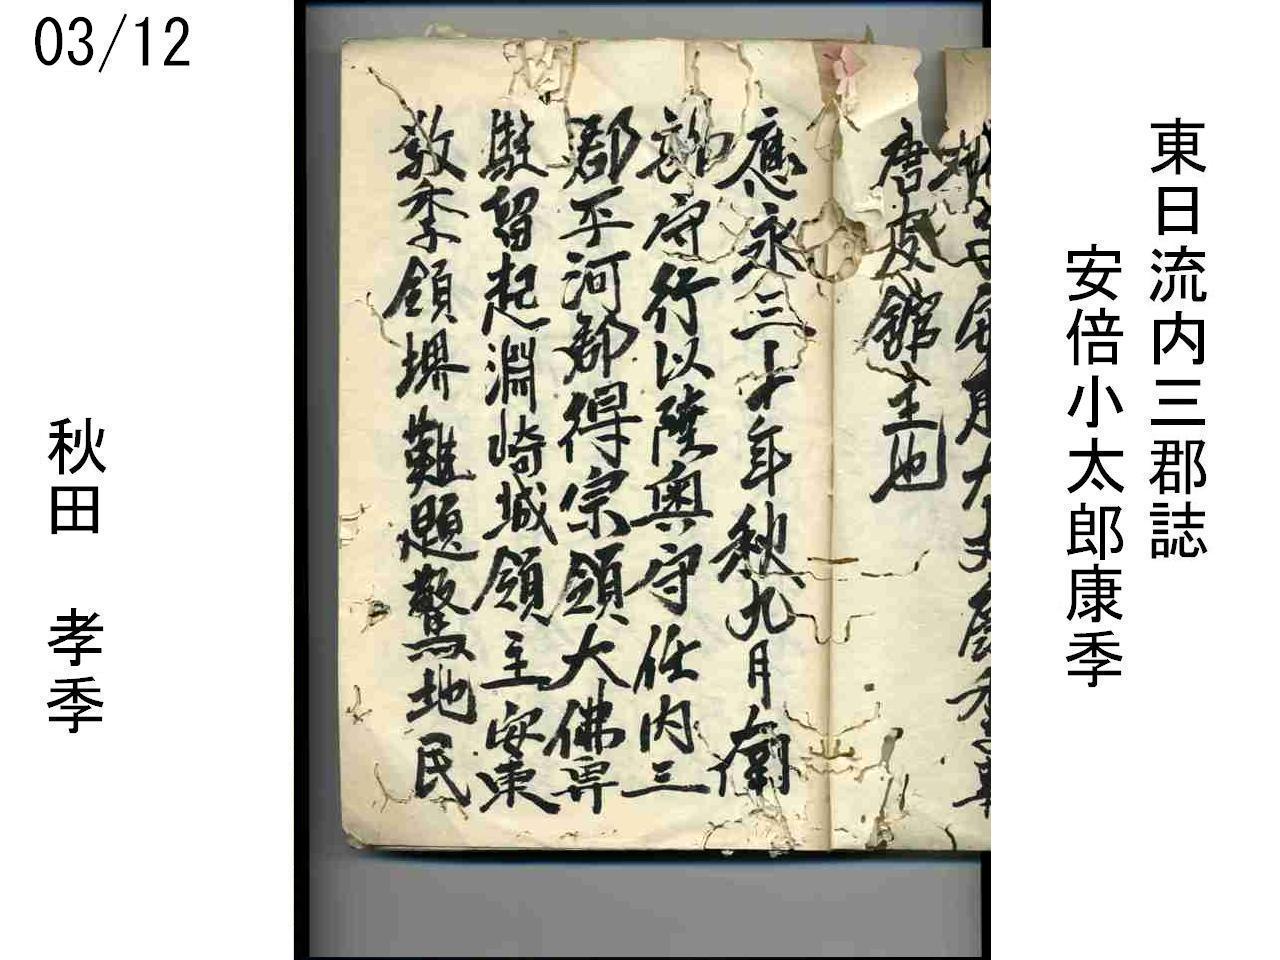 03/12
東日流内三郡誌
安倍小太郎康季
唐皮舘主也
應永三十年秋九月衛
守行以陸奥守任内三
郡平河郡得宗領大佛専
駐留起淵崎城領主安東
教季領堺難題驚地民
秋田 孝季